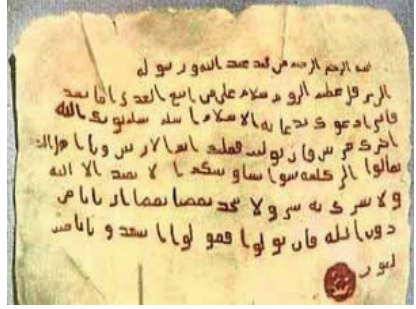 بسم الله الرحمن الرحيم من محمد عبد الله ورسوله
الى هرقل عظيم الروم سلام على من اتبع الهدى اما بعد
فاني ادعوك بدعاية الاسلام اسلم تسلم يوتك الله
اجرك مرتين فان توليت فعليك اثم الاريسين ويا اهل
تعالوا الى كلمة سوا بيننا وبينكم ا لا نعبد الا الله
ولا نشرك به ولا يتخذ بعضنا بعضا اربابا من
دون الله فان تولوا فقولوا اشهدوا بانا